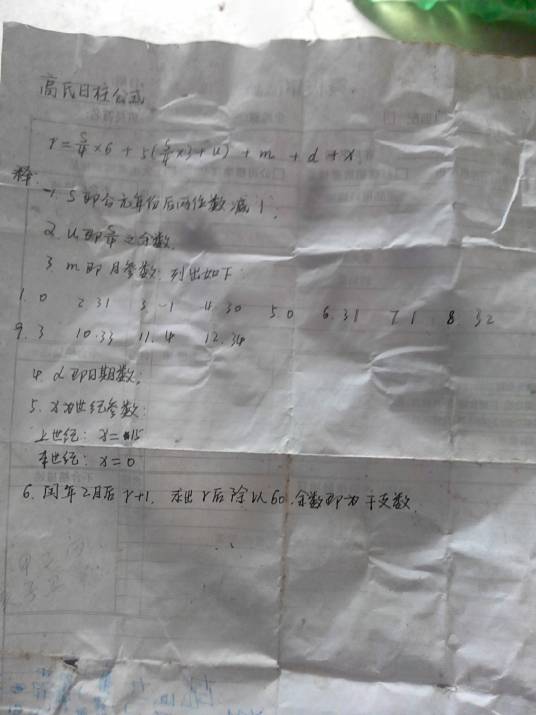 高氏日柱公式
r=S/4×6+5(S/4×3+u)+m+d+x
释:
1. S即公元年份后两位数减1,
2. u即S/4之余数.
3. m即月参数, 列出如下:
1. 0 2. 31 3. -1 4. 30 5. 0 6. 31 7. 1 8. 32
9. 3 10. 33 11. 4 12. 34
4. d即日期数,
5. x为世纪参数:
上世纪: x=15
本世纪: x=0
6. 闰年2月后r+1. 求出r后除以60. 余数即为干支数.